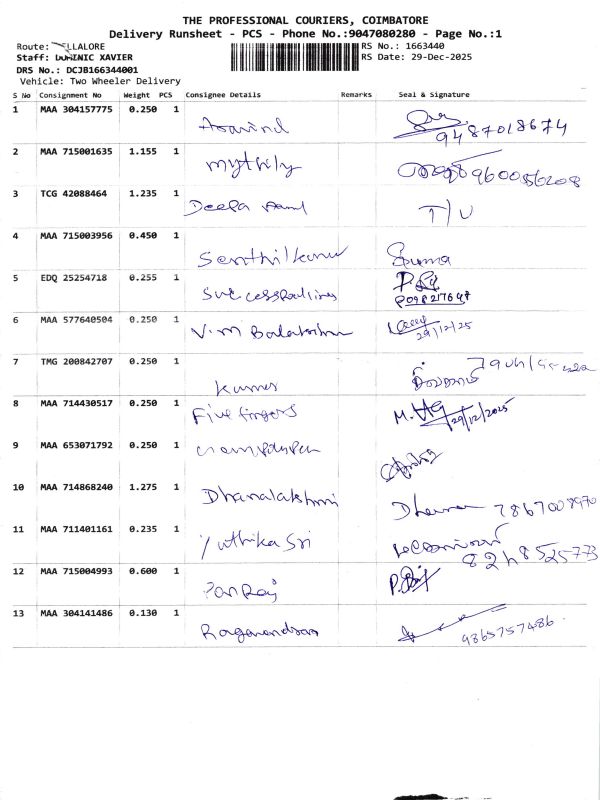 THE PROFESSIONAL COURIERS, COIMBATORE
Delivery Runsheet - PCS - Phone No.:9047080280 - Page No.:1
Route: ELLALORE
RS No.: 1663440
Staff: DOMINIC XAVIER
RS Date: 29-Dec-2025
DRS No.: DCJB166344001
Vehicle: Two Wheeler Delivery
S No Consignment No Weight PCS Consignee Details Remarks Seal & Signature
1 MAA 304157775 0.250 1 Aravind 9487018674
2 MAA 715001635 1.155 1 Mythily 9600856208
3 TCG 42088464 1.235 1 Deepa T/U
4 MAA 715003956 0.450 1 Senthilkumar Suma
5 EDQ 25254718 0.255 1
6 MAA 577640504 0.250 1 V.M Balakrishna 29/12/25
7 TMG 200842707 0.250 1 Kumar
8 MAA 714430517 0.250 1 Five fingers 29/12/2025
9 MAA 653071792 0.250 1
10 MAA 714868240 1.275 1 Dhanalakshmi 7867008970
11 MAA 711401161 0.235 1 Yuthika Sri
12 MAA 715004993 0.600 1 Pon Raj
13 MAA 304141486 0.130 1 Ragavendran 9865757486